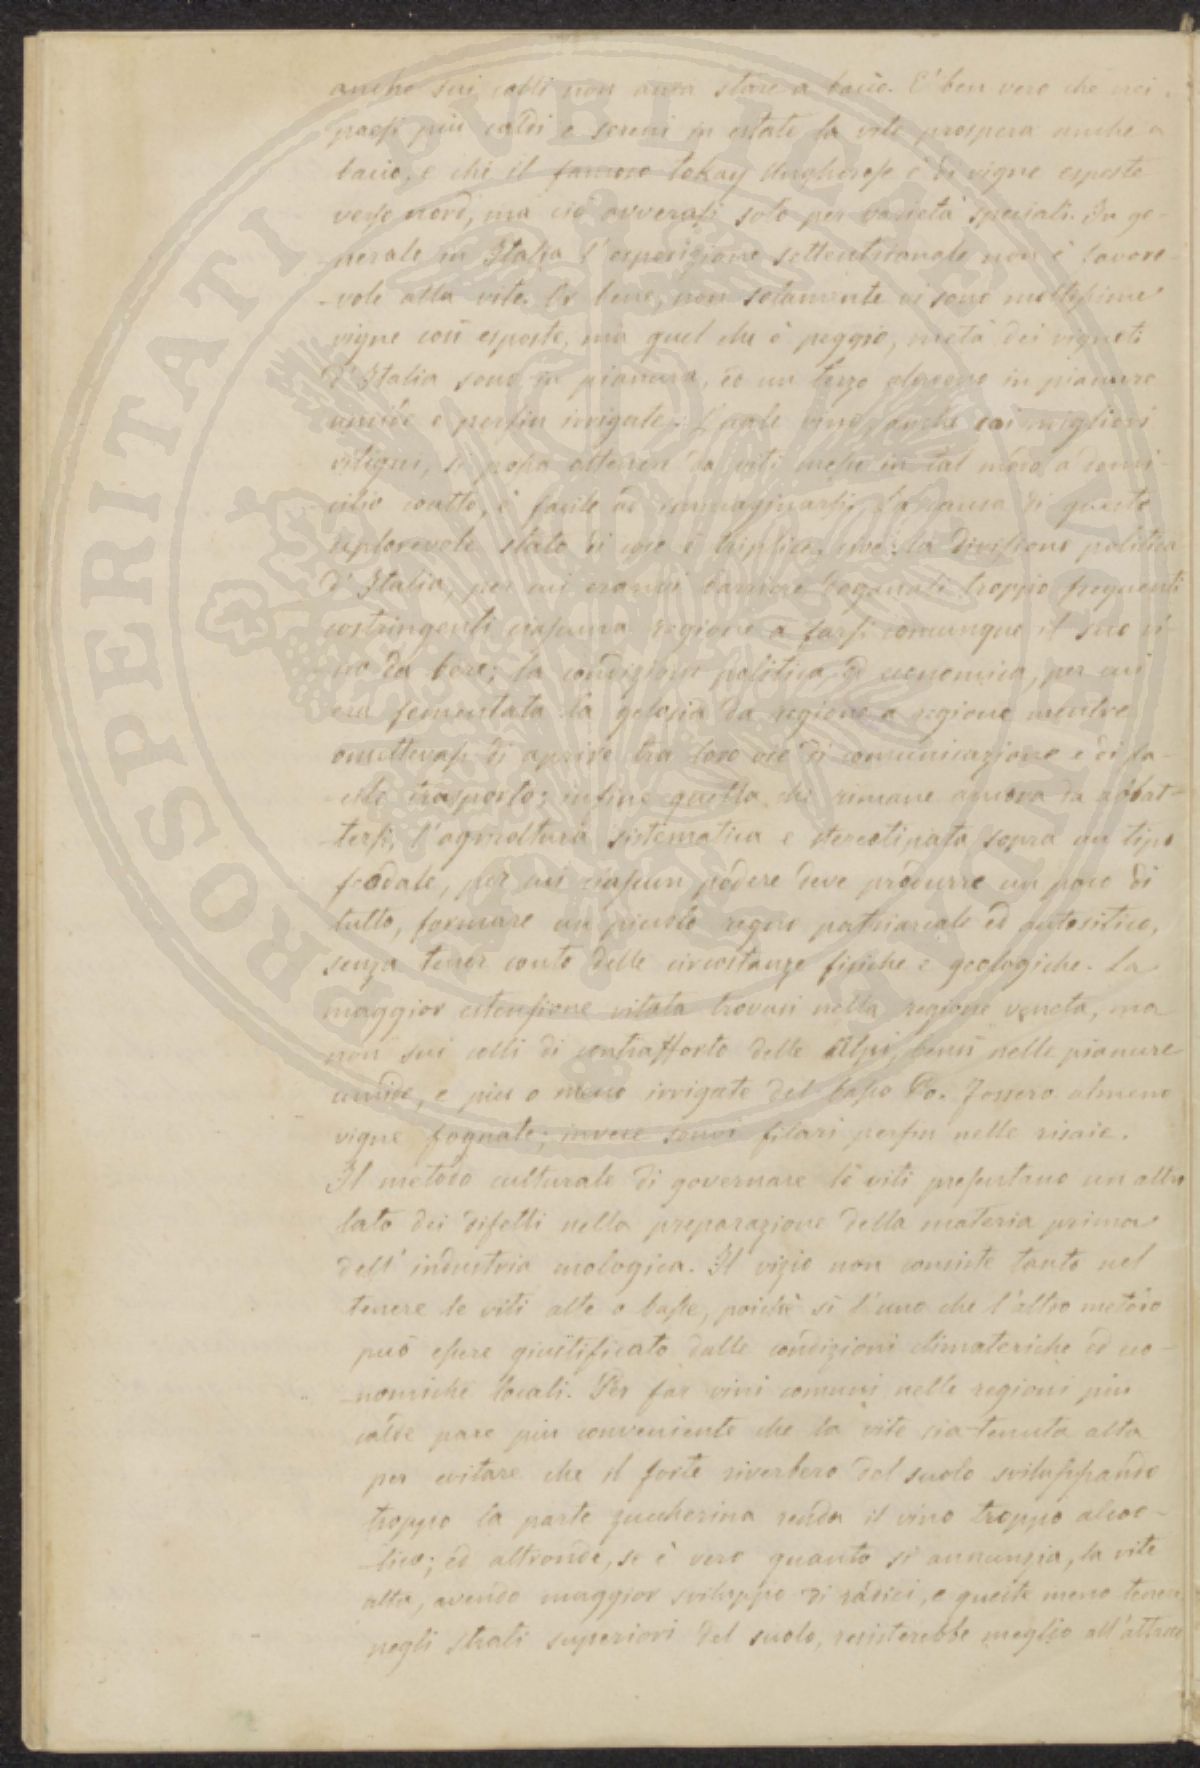 anche sui colli non ama stare a bacìo. E' ben vero che nei
paesi più caldi e sereni in estate la vite prospera anche a
bacìo, e che il famoso tokay Ungherese è di vigne esposte
verso nord, ma ciò avverasi solo per varietà speciali. In ge-
-nerale in Italia l'esposizione settentrionale non è favore-
-vole alla vite. Or bene, non solamente vi sono moltissime
vigne così esposte, ma quel che è peggio, metà dei vigneti
d'Italia sono in pianura, ed un terzo almeno in pianure
umide e persin irrigate. Quale vino, anche coi migliori
vitigni, si possa ottenere da viti messe in tal modo a domi-
cilio coatto, è facile ad immaginarsi. La causa di questo
deplorevole stato di cose è triplice, cioè: la divisione politica
d'Italia, per cui eranvi barriere doganali troppo frequenti
costringenti ciascuna regione a farsi comunque il suo vi-
-no da bere; la condizione politica ed economica, per cui
era fomentata la gelosia da regione a regione mentre
omettevasi di aprire tra loro vie di comunicazione e di fa-
-cile trasporto; infine quella che rimane ancora da abbat-
-tersi, l'agricoltura sistematica e stereotipata sopra un tipo
feodale, per cui ciascun podere deve produrre un poco di
tutto, formare un piccolo regno patriarcale ed autositico,
senza tener conto delle circostanze fisiche e geologiche. La
maggior estensione vitata trovasi nella regione veneta, ma
non sui colli di contrafforto delle Alpi, bensì nelle pianure
umide, e più o meno irrigate del basso Po. Fossero almeno
vigne fognate; invece sonvi filari persin nelle risaie.
Il metodo culturale di governare le viti presentano un altro
lato dei difetti nella preparazione della materia prima
dell'industria enologica. Il vizio non consiste tanto nel
tenere le viti alte o basse, poichè sì l'uno che l'altro metodo
può essere giustificato dalle condizioni climateriche ed eco-
-nomiche locali. Per far vini comuni nelle regioni più
calde pare più conveniente che la vite sia tenuta alta
per evitare che il forte riverbero del suolo sviluppando
troppo la parte zuccherina renda il vino troppo alcoo-
-lico; ed altronde, se è vero quanto si annunzia, la vite
alta, avendo maggior sviluppo di radici, e queste meno tenere
negli strati superiori del suolo, resisterebbe meglio all'attacco